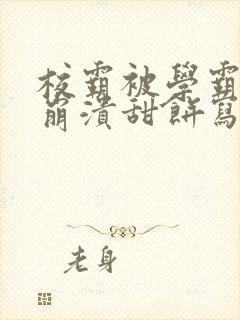 校霸被學霸
崩潰甜餅寫
老身